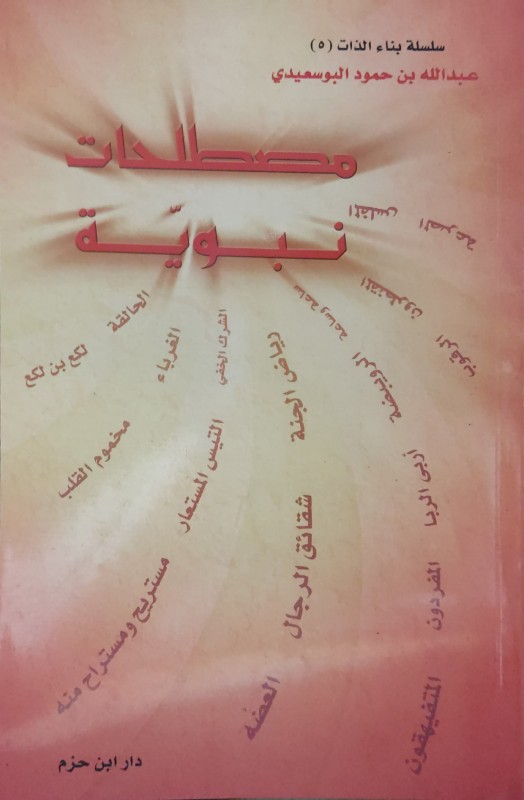 سلسلة بناء الذات (٥)
عبدالله بن حمود البوسعيدي
مصطلحات
نبويّة
المفلس
القزعة
ساعة وساعة
المقنطرون
الرقوب
الحالقة
لكع بن لكع
الغرباء
الشرك الخفي
رياض الجنة
الرويبضة
مخموم القلب
التيس المستعار
شقائق الرجال
أربى الربا
المفردون
مستريح ومستراح منه
العضه
المتفيهقون
دار ابن حزم